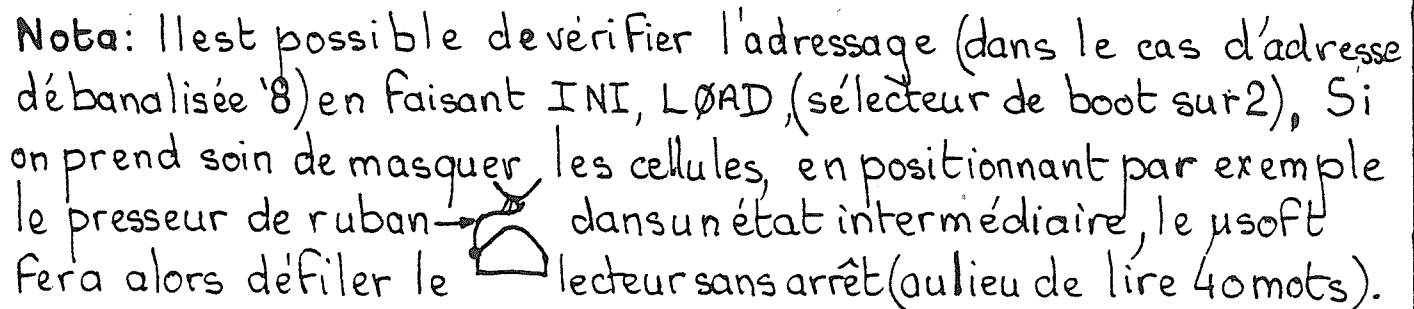 Nota: Il est possible de vérifier l'adressage (dans le cas d'adresse
débanalisée '8) en faisant INI, LØAD, (sélecteur de boot sur 2), Si
on prend soin de masquer les cellules, en positionnant par exemple
le presseur de ruban dans un état intermédiaire, le µsoft
fera alors défiler le lecteur sans arrêt (au lieu de lire 40 mots).